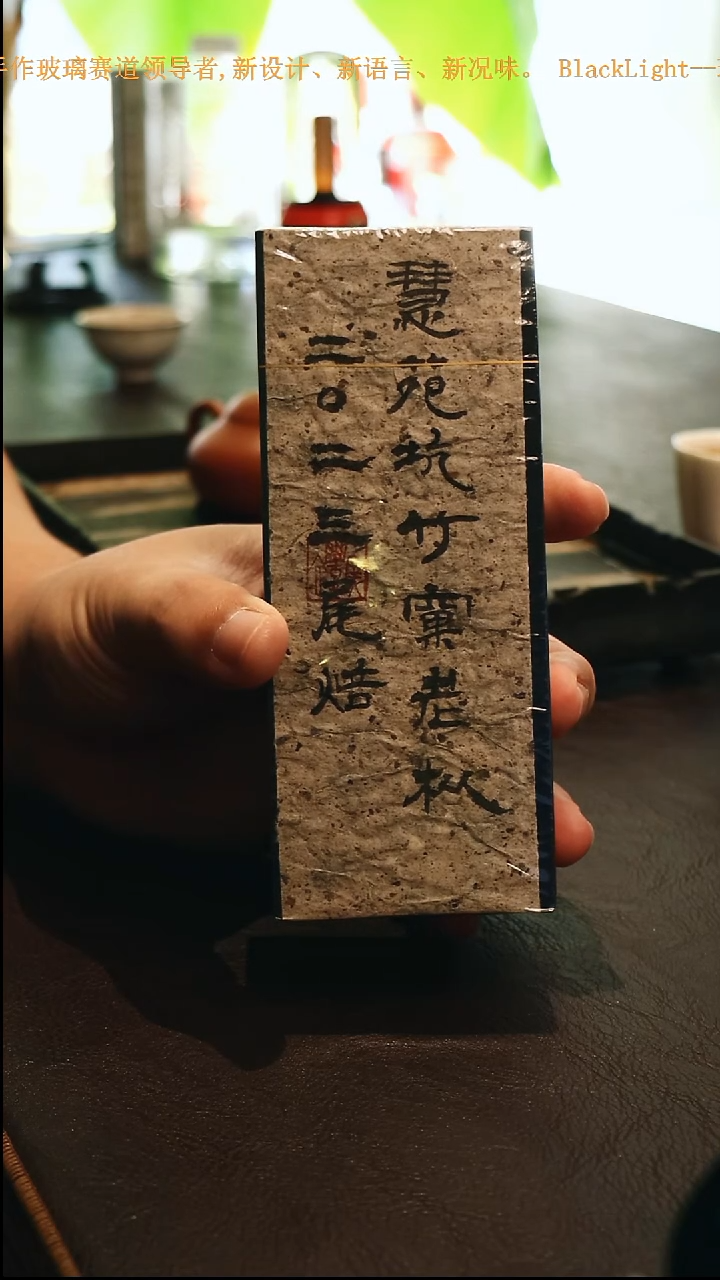 手作玻璃赛道领导者,新设计、新语言、新况味。 BlackLight--
慧苑坑竹窠老枞
二〇二三尾焙